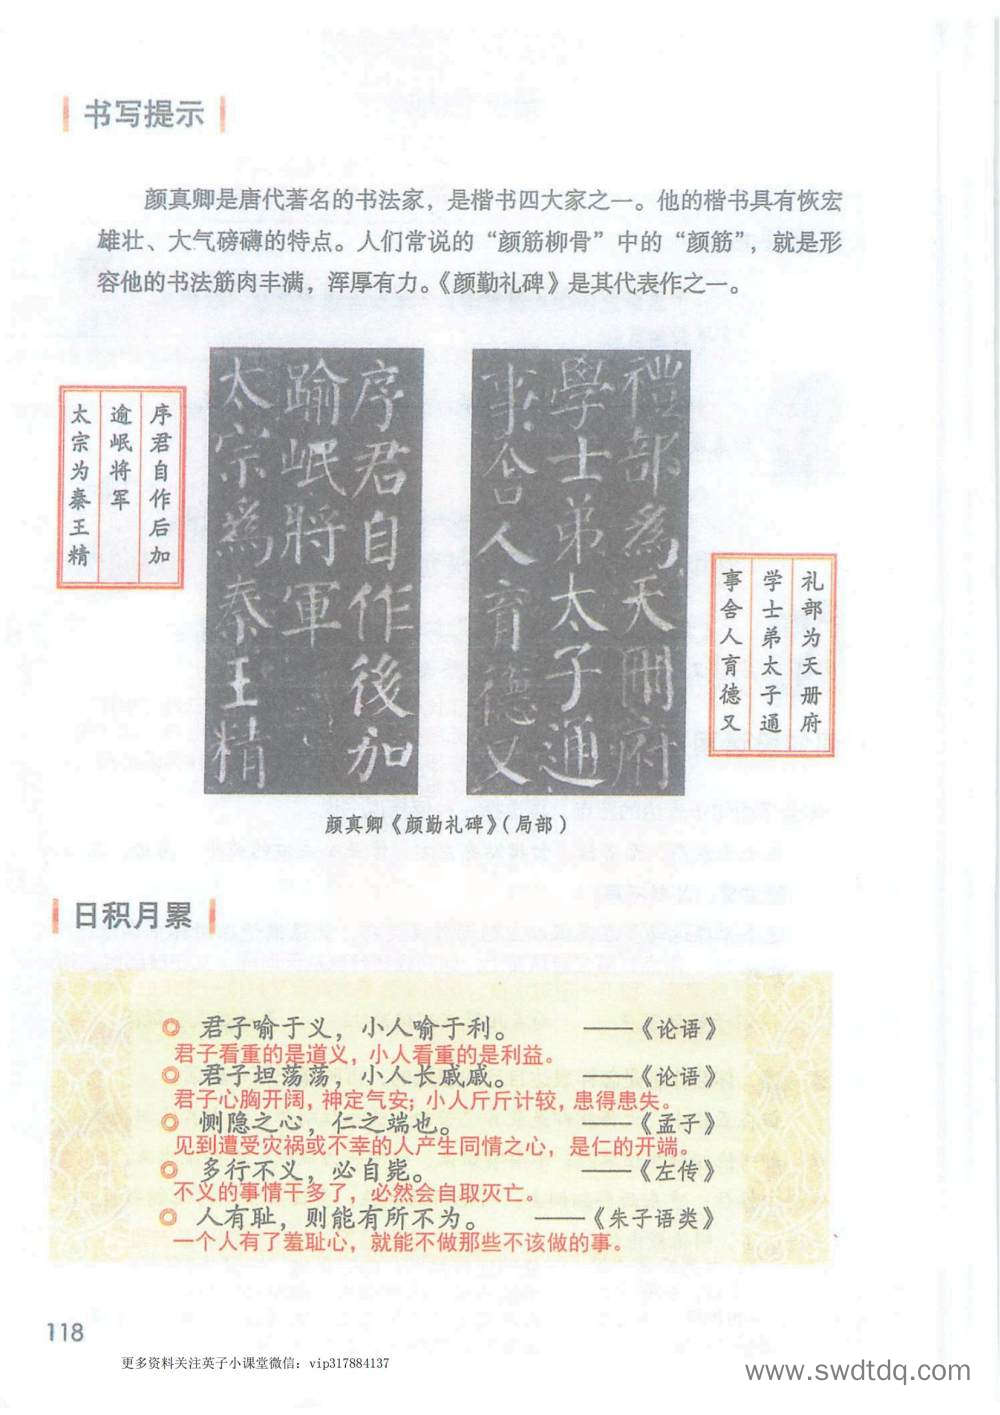 书写提示
颜真卿是唐代著名的书法家，是楷书四大家之一。他的楷书具有恢宏
雄壮、大气磅礴的特点。人们常说的“颜筋柳骨”中的“颜筋”，就是形
容他的书法筋肉丰满，浑厚有力。《颜勤礼碑》是其代表作之一。
序君自作后加
逾岷将军
太宗为秦王精
序君自作後加
踰岷將軍
太宗為秦王精
禮部為天冊府
學士弟太子通
事舍人育德又
礼部为天册府
学士弟太子通
事舍人育德又
颜真卿《颜勤礼碑》（局部）
日积月累
君子喻于义，小人喻于利。 ——《论语》
君子看重的是道义，小人看重的是利益。
君子坦荡荡，小人长戚戚。 ——《论语》
君子心胸开阔，神定气安；小人斤斤计较，患得患失。
恻隐之心，仁之端也。 ——《孟子》
见到遭受灾祸或不幸的人产生同情之心，是仁的开端。
多行不义，必自毙。 ——《左传》
不义的事情干多了，必然会自取灭亡。
人有耻，则能有所不为。 ——《朱子语类》
一个人有了羞耻心，就能不做那些不该做的事。
118
更多资料关注英子小课堂微信：vip317884137
www.swdtdq.com